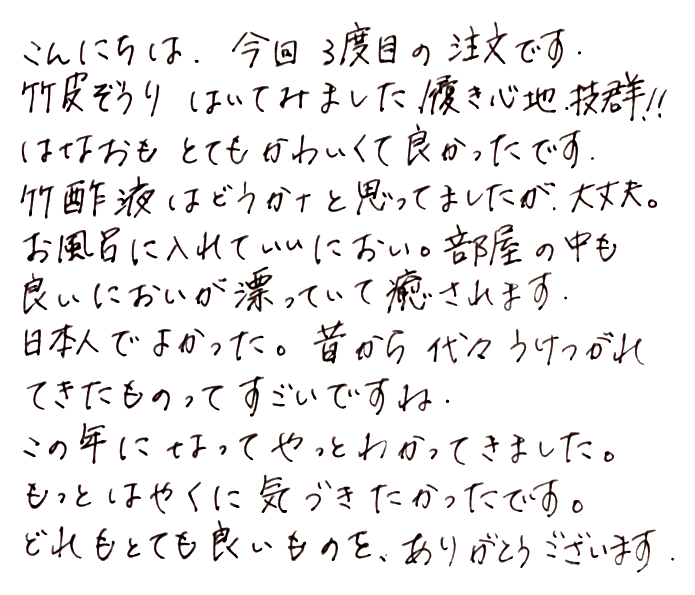 こんにちは. 今回 3度目の 注文です.
竹皮ぞうり はいてみました.履き心地.抜群!!
はなおも とても かわいくて 良かったです.
竹酢液はどうかナと思ってましたが、大丈夫。
お風呂に入れていいにおい。部屋の中も
良いにおいが漂っていて癒されます.
日本人でよかった。昔から代々うけつがれ
てきたものってすごいですね.
この年になってやっとわかってきました。
もっとはやくに気づきたかったです。
どれもとても良いものを、ありがとうございます.